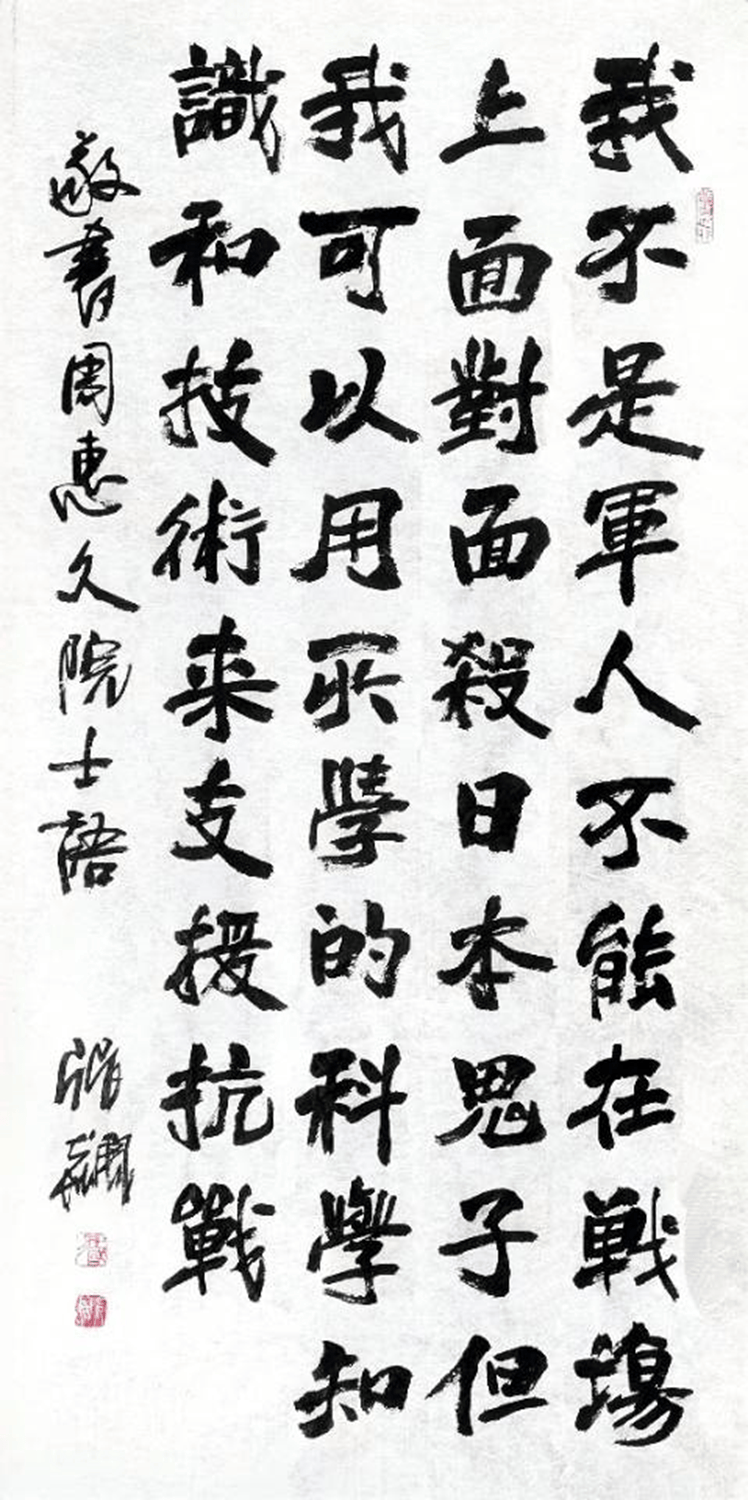 我不是軍人不能在戦場
上面對面殺日本鬼子但
我可以用所學的科學知
識和技術来支援抗戰
敬書周惠久院士語
張